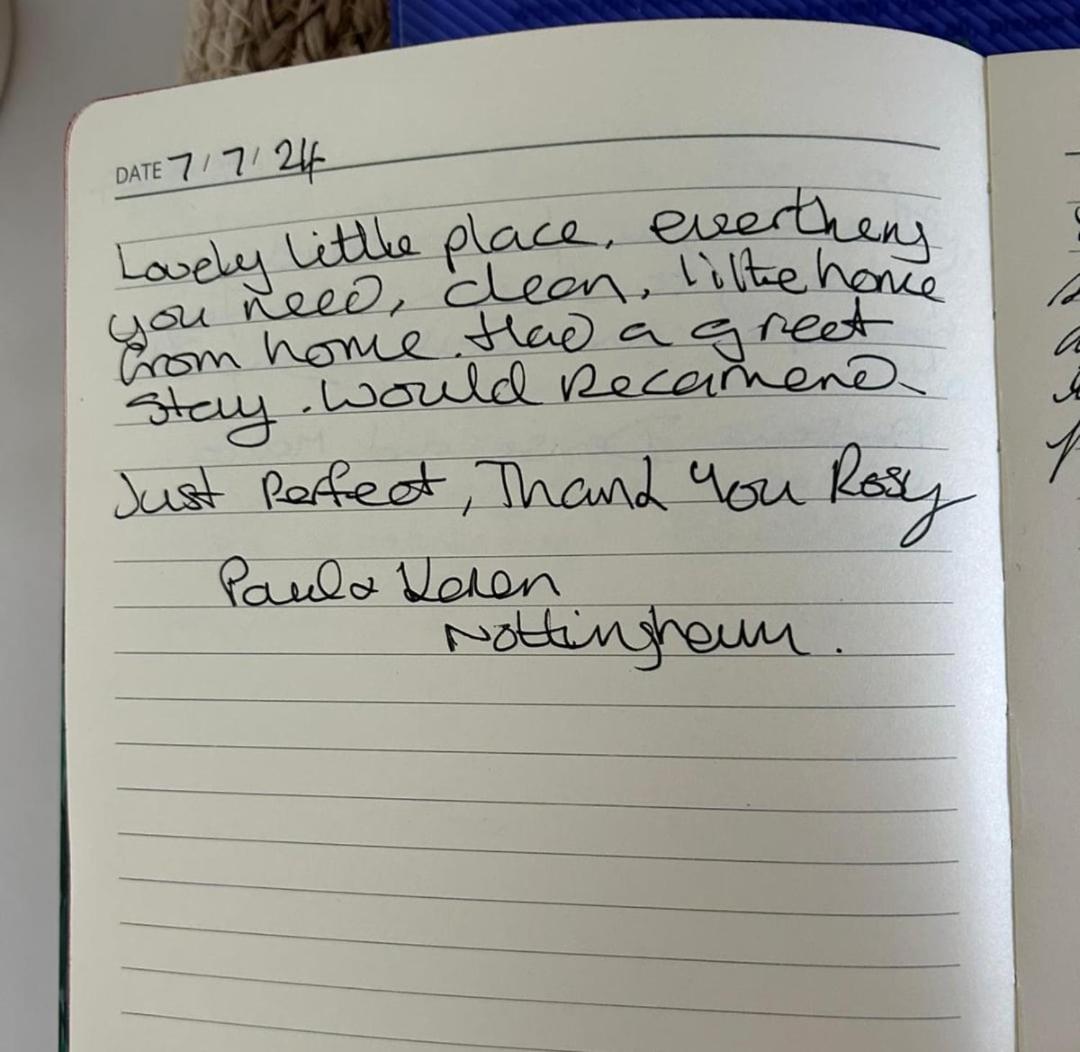 DATE 7/7/24
Lovely little place, evertheng
you need, clean, like home
from home. Had a greet
stay. Would Recamend
Just Perfect, Thank You Rosy
Paul & Karen
Nottingham.